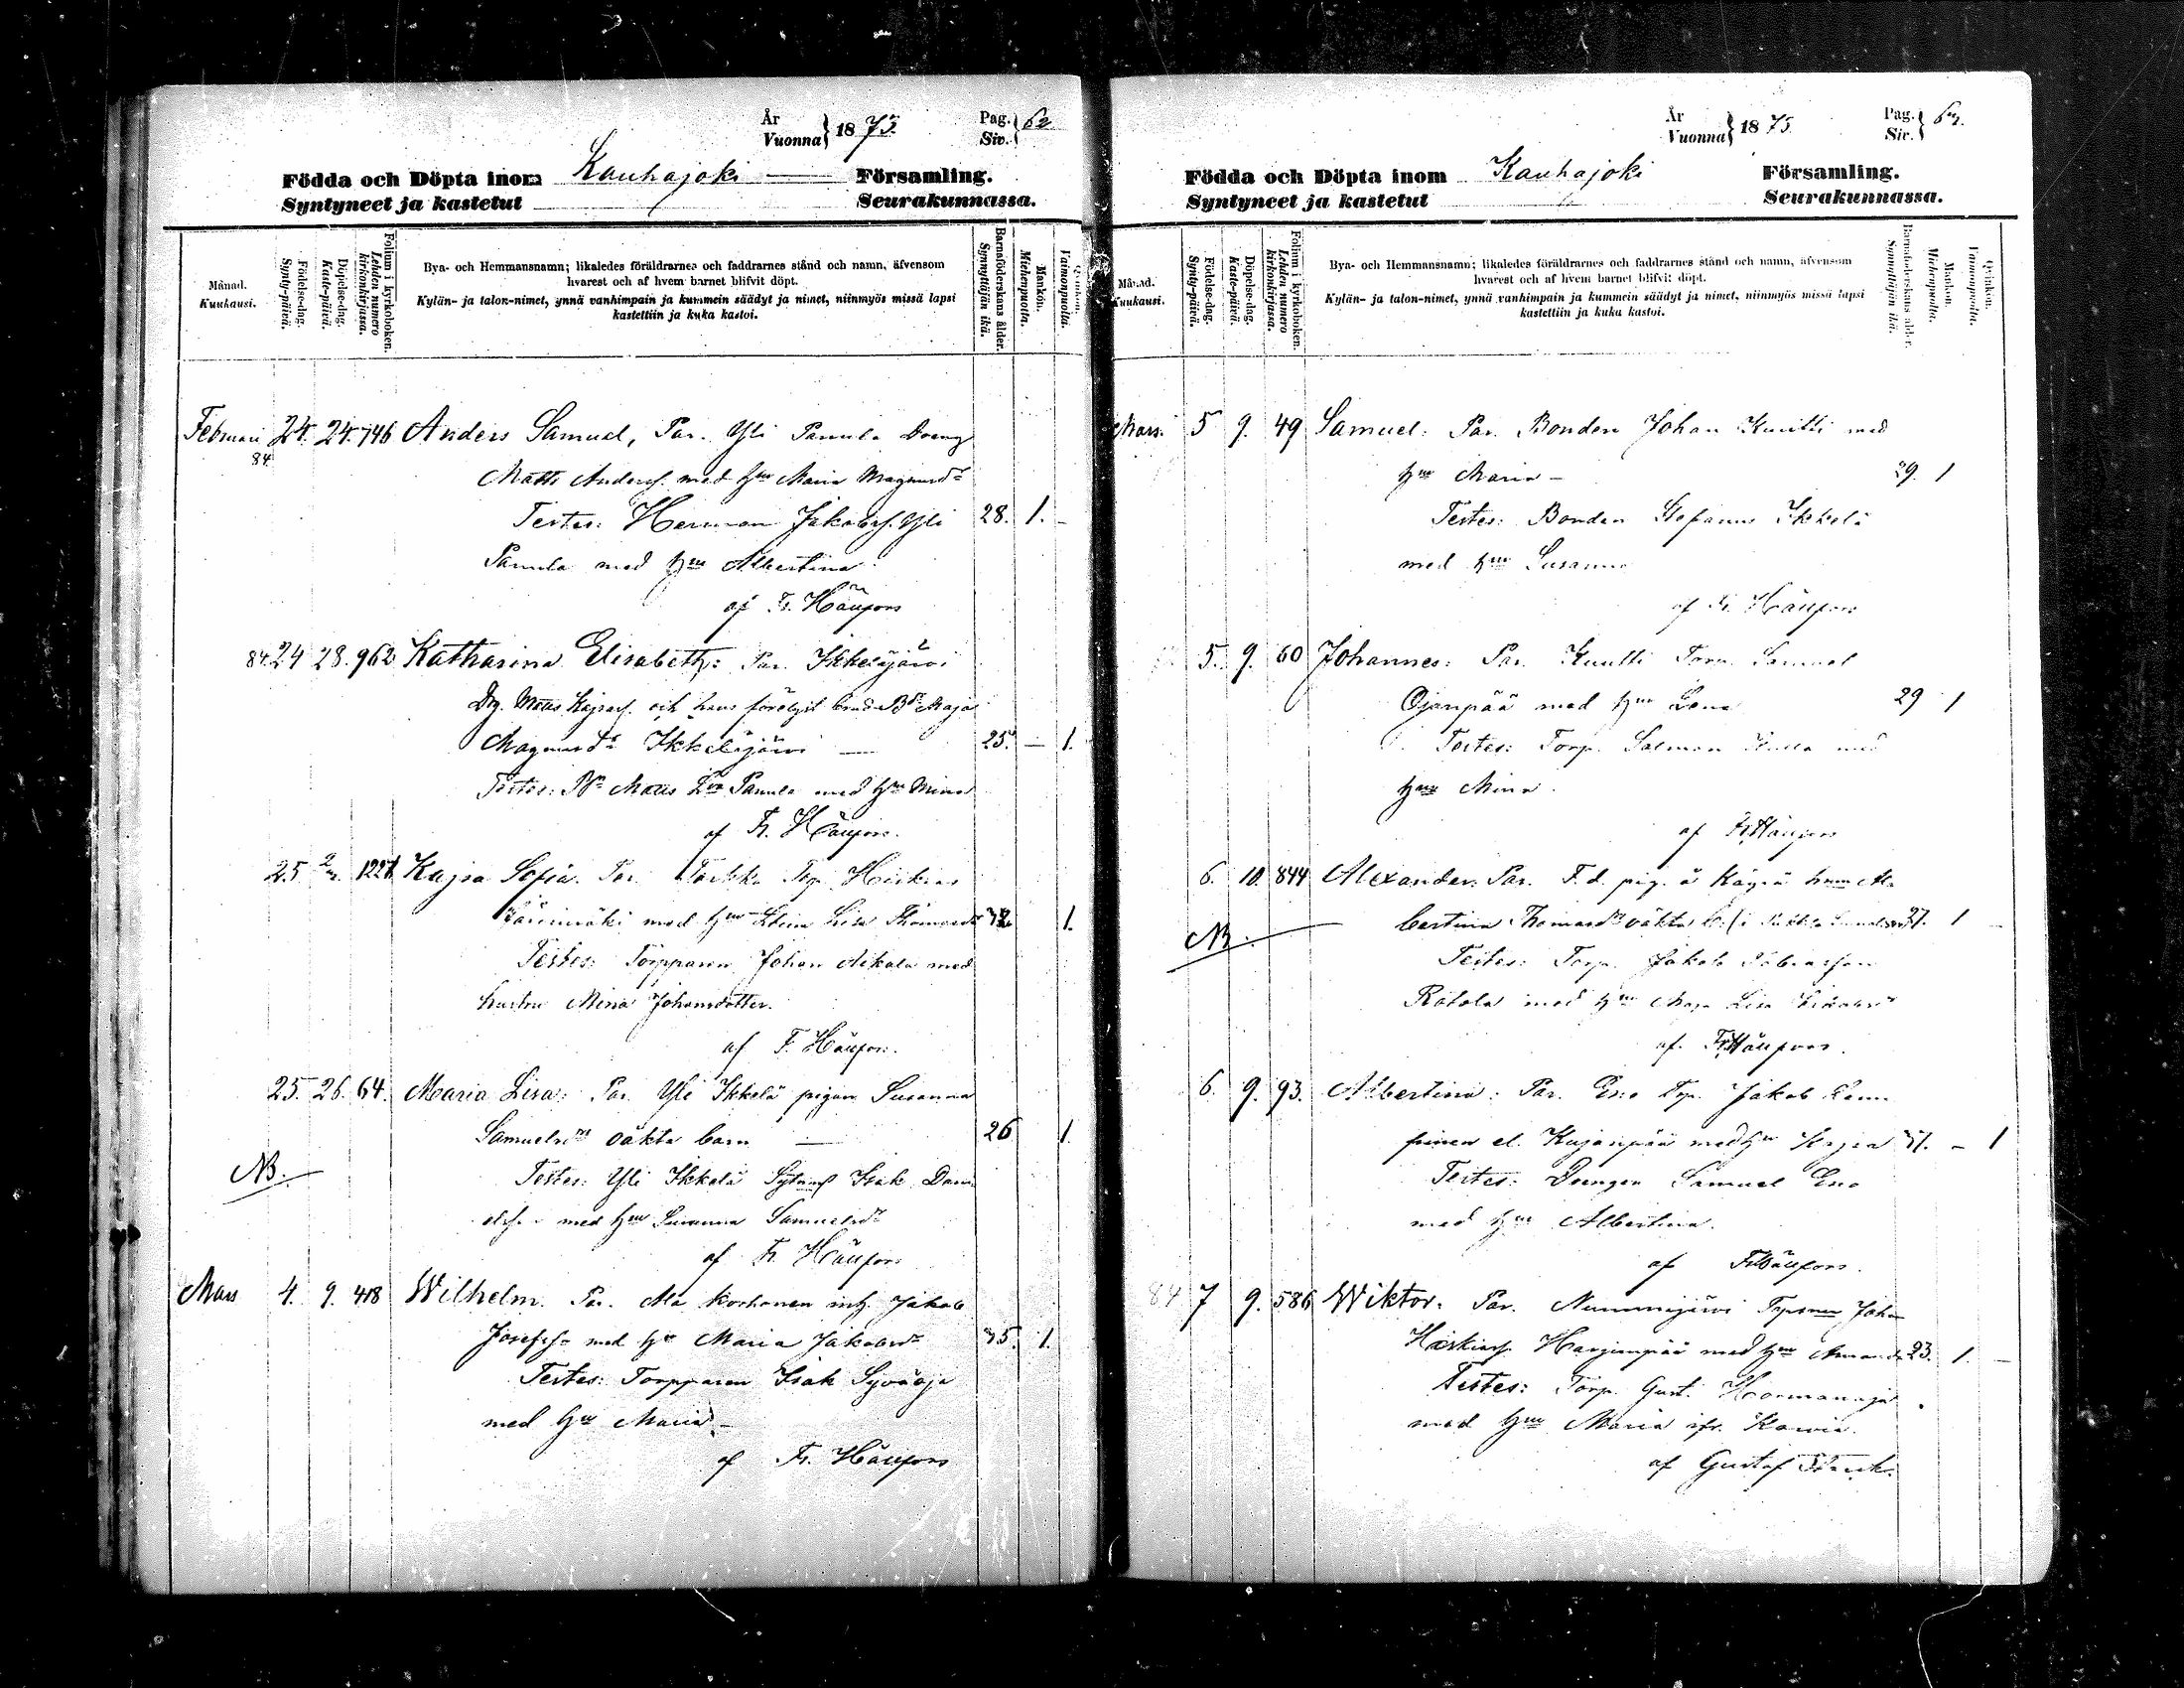 År
Vuonna } 1875. Pag. Siv. } 62
Födda och Döpta inom Kauhajoki Församling.
Syntyneet ja kastetut Seurakunnassa.
Månad. Kuukausi.
Födelse-dag. Synty-päivä.
Döpelse-dag. Kaste-päivä.
Folium i kyrkoboken. Lehden numero kirkonkirjassa.
Bya- och Hemmansnamn; likaledes föräldrarnes och faddrarnes stånd och namn, äfvensom
hvarest och af hvem barnet blifvit döpt.
Kylän- ja talon-nimet, ynnä vanhimpain ja kummein säädyt ja nimet, niinmyös missä lapsi
kastettiin ja kuka kastoi.
Barnaföderskans ålder. Synnyttäjän ikä.
Mankön. Miehenpuolta.
Qvinkön. Vaimonpuolta.
Februari 24. 24. 746 Anders Samuel, Par. Yli Panula Dreng
84
Matts Andersf. med hru Maria Magnusdr
Testes: Herman Jakobsf. Yli 28. 1. –
Panula med hru Albertina
af Fr. Häufors
84. 24 28. 962 Katharina Elisabeth: Par. Ikkeläjärvi
Drg. Matts Kajsasf. och hans brud Maja
Magnusdr Ikkeläjärvi — 25. — 1.
Testes: Matts Panula med hru Mina
af Fr. Häufors.
25. 1221 Kajsa Sofia. Par. Torp. Hiskias
med hru Lisa Thomasdr 1.
Testes: Torpparen Johan Aikala med
hustru Mina Johansdotter.
af F. Häufors.
25. 26. 64. Maria Lisa: Par. Yli Ikkelä pigan Susanna
Samuelsdrs oäkta barn — 26 1.
NB.
Testes: Yli Ikkelä Isak Dani
elsf. med hru Susanna Samuelsdr
af Fr. Häufors
Mars 4. 9. 418 Wilhelm. Par. Ala Korhonen inh. Jakob
Josefsf. med hru Maria Jakobsdr 35. 1.
Testes: Torpparen Isak Syväoja
med hru Maria –
af Fr. Häufors
År
Vuonna } 1875. Pag. Siv. } 63.
Födda och Döpta inom Kauhajoki Församling.
Syntyneet ja kastetut Seurakunnassa.
Månad. Kuukausi.
Födelse-dag. Synty-päivä.
Döpelse-dag. Kaste-päivä.
Folium i kyrkoboken. Lehden numero kirkonkirjassa.
Bya- och Hemmansnamn; likaledes föräldrarnes och faddrarnes stånd och namn, äfvensom
hvarest och af hvem barnet blifvit döpt.
Kylän- ja talon-nimet, ynnä vanhimpain ja kummein säädyt ja nimet, niinmyös missä lapsi
kastettiin ja kuka kastoi.
Barnaföderskans ålder. Synnyttäjän ikä.
Mankön. Miehenpuolta.
Qvinkön. Vaimonpuolta.
Mars. 5 9. 49 Samuel: Par. Bonden Johan Knuutti med
hru Maria – 29. 1
Testes: Bonden Stefanus Ikkelä
med hru Susanna
af Fr. Häufors
5. 9. 60 Johannes: Par. Knuutti Torp. Samuel
Ojanpää med hru Lena 29 1
Testes: Torp. Salomon med
hru Mina.
af Fr. Häufors
6. 10. 844 Alexander: Par. F. d. pig. å Käyrä Al
bertina Thomasdrs oäkta b. 27. 1
NB.
Testes: Torp. Jakob
Rätola med hru Maja Lisa
af. Fr. Häufors.
6. 9. 93. Albertina: Par. Eno Torp. Jakob
el. Kujanpää med hru Kajsa – 1
Testes: Drengen Samuel Eno
med hru Albertina.
af Fr. Häufors.
84 7 9. 586 Wiktor: Par. Nummijärvi Johan
Hiskiasf. Harjunpää med hru Amanda 23. 1. –
Testes: Torp. Gust. Hormanoja
med hru Maria
af Gustaf